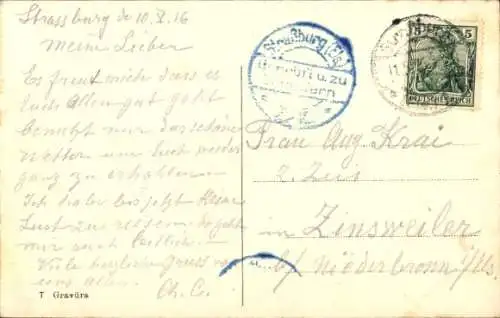 Strassburg de 10.V.16
Meine Lieber
Es freut mich das es
Euch Allen gut geht
nur das schöne
Wetter um Euch wieder
ganz zu erhohlen
Ich habe bis jetzt keine
Lust zu reisen
mir auch
Viele herzliche Gruss
euch Allen
Ch. C.
7 Gravüra
Straßburg (Els.)
Geprüft u. zu
5
DEUTSCHES REICH
Frau Aug. Krai
z. Zeit
in Zinsweiler
b/ Niederbronn i/Els.